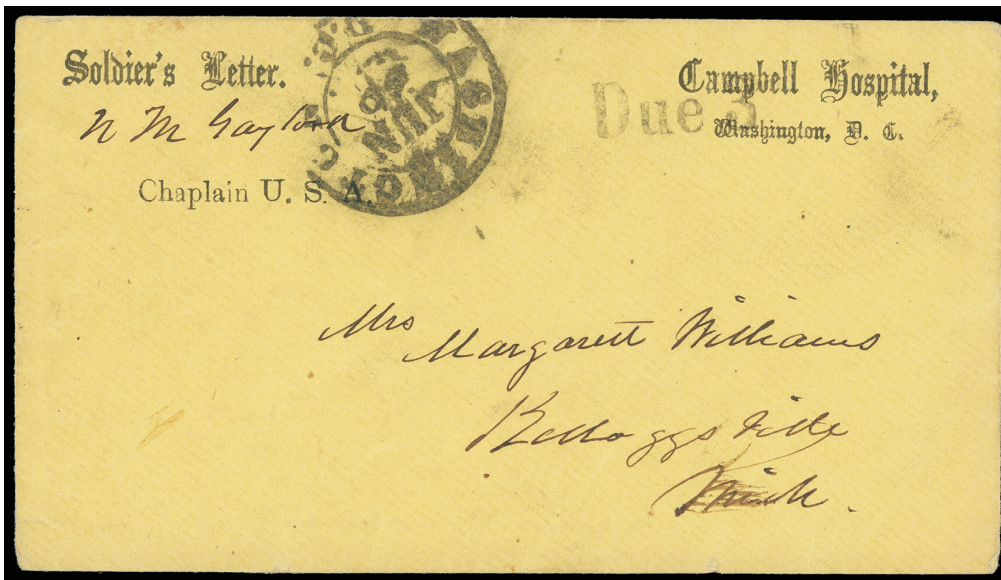 Soldier's Letter.
N M Gaylord
Chaplain U. S. A.
WASHINGTON D.C.
JUN
Due 3
Campbell Hospital,
Washington, D. C.
Mrs
Margarett Williams
Kelloggsville
Mich.